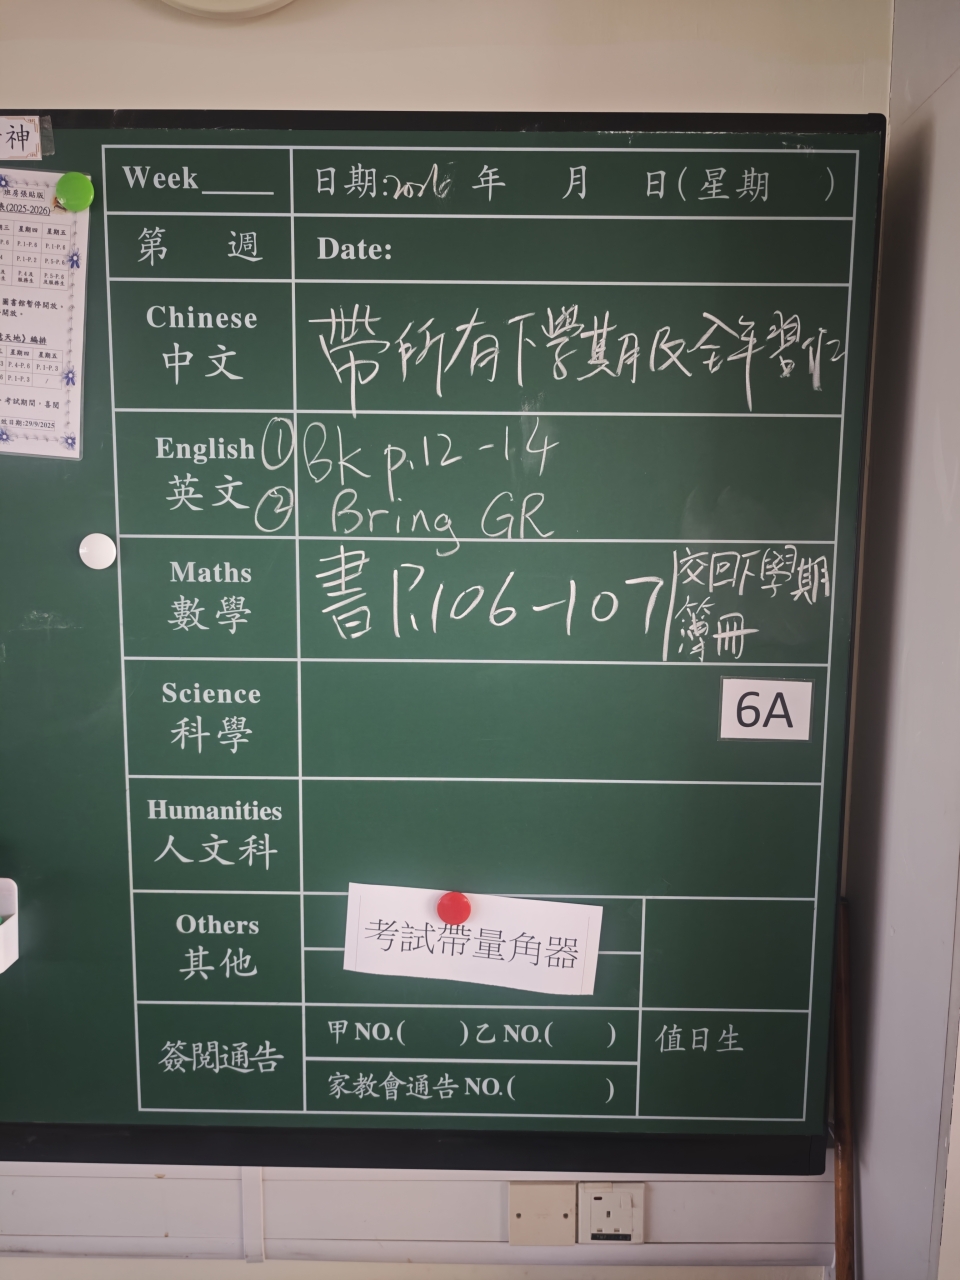 神
班房張貼版
(2025-2026)
星期四 星期五
圖書館暫停開放。
編排
星期四 星期五
考試期間，
日期:29/9/2025
Week____ 日期:2026 年 月 日(星期 )
第 週 Date:
Chinese 中文 帶所有下學期及全年習作
English 英文 ① Bk p.12-14
② Bring GR
Maths 數學 書P.106-107 交回下學期
簿冊
Science 科學
6A
Humanities 人文科
Others 其他 考試帶量角器
簽閱通告 甲NO.( )乙NO.( ) 值日生
家教會通告NO.( )